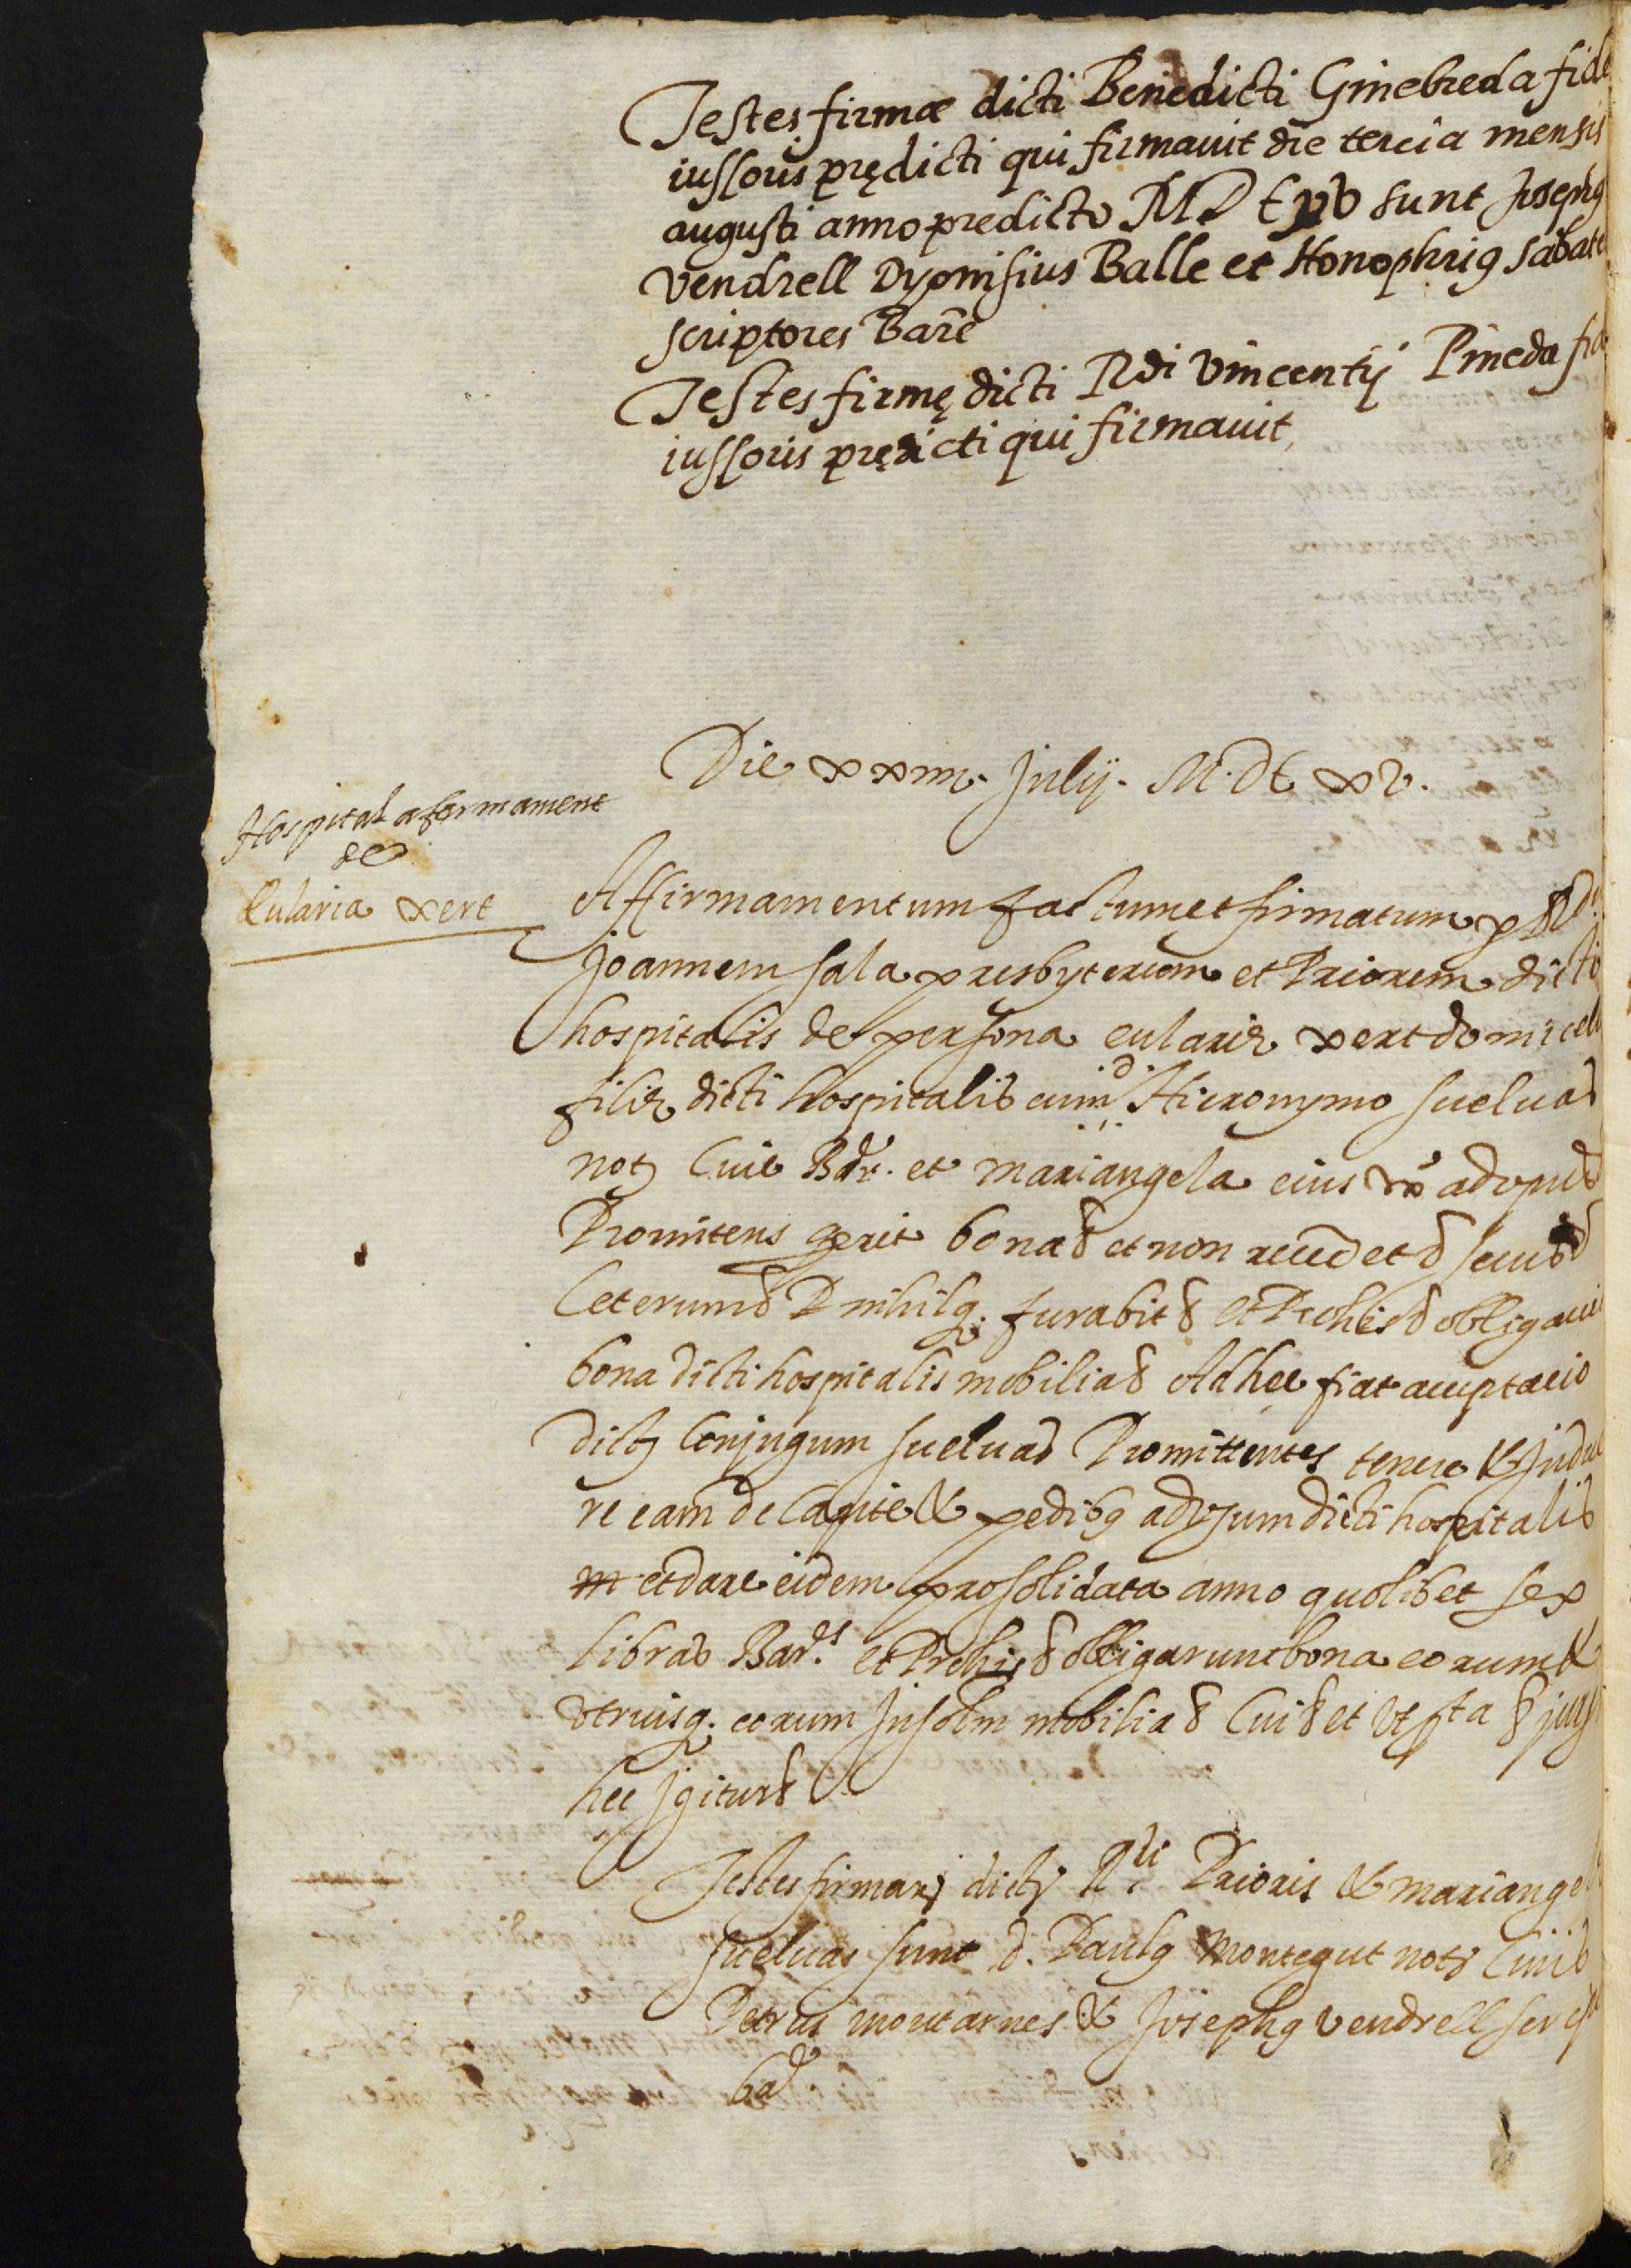 Testes firmæ dicti Benedicti Ginebreda fide
iussoris prędicti qui firmavit die tercia mensis
augusti anno predicto MDCxv sunt Josephꝯ
Vendrell Dyonisius Balle et Honophriꝯ Sabate
scriptores Barẽ
Testes firmę dicti Rdi Vincentij Pineda fide
iussoris prędicti qui firmavit,
Die xxiiii. Julij. M.DC xv.
Hospital afermament
de
Eularia Xert
Affirmamentum factum et firmatum p Rdũ
Joannem Sala presbyterum et Priorem dicti
hospitalis de persona eularie Xert domicell
filie dicti hospitalis cum d. Hieronymo Suelvas
notꝫ Cive Bar. et mariangela eius ux ad opus
Promitens qerit bona & et non recedet &
Ceterum & nihilqꝫ furabit & Et Prohis & obligavit
bona dicti hospitalis mobilia & Ad hec fiat acceptacio
dictꝫ Conjugum Suelvas Promittentes tenere & Indue
re eam de Capite & pedibꝯ ad usum dicti hospitalis
m et dare eidem pro solidata anno quolibet sex
libras Bar.s et Prohis & obligarunt bona eorum &
utriusqꝫ eorum Insolm mobilia & Cui & et Ut sta & jur
hec Igitur &
Testes firmarꝫ dictꝫ R.di Prioris & mariangel
Suelvas sunt d. Paulꝯ Montegut notꝫ Civis
Petrus montarnes & Josephꝯ Vendrell scrip
bar.